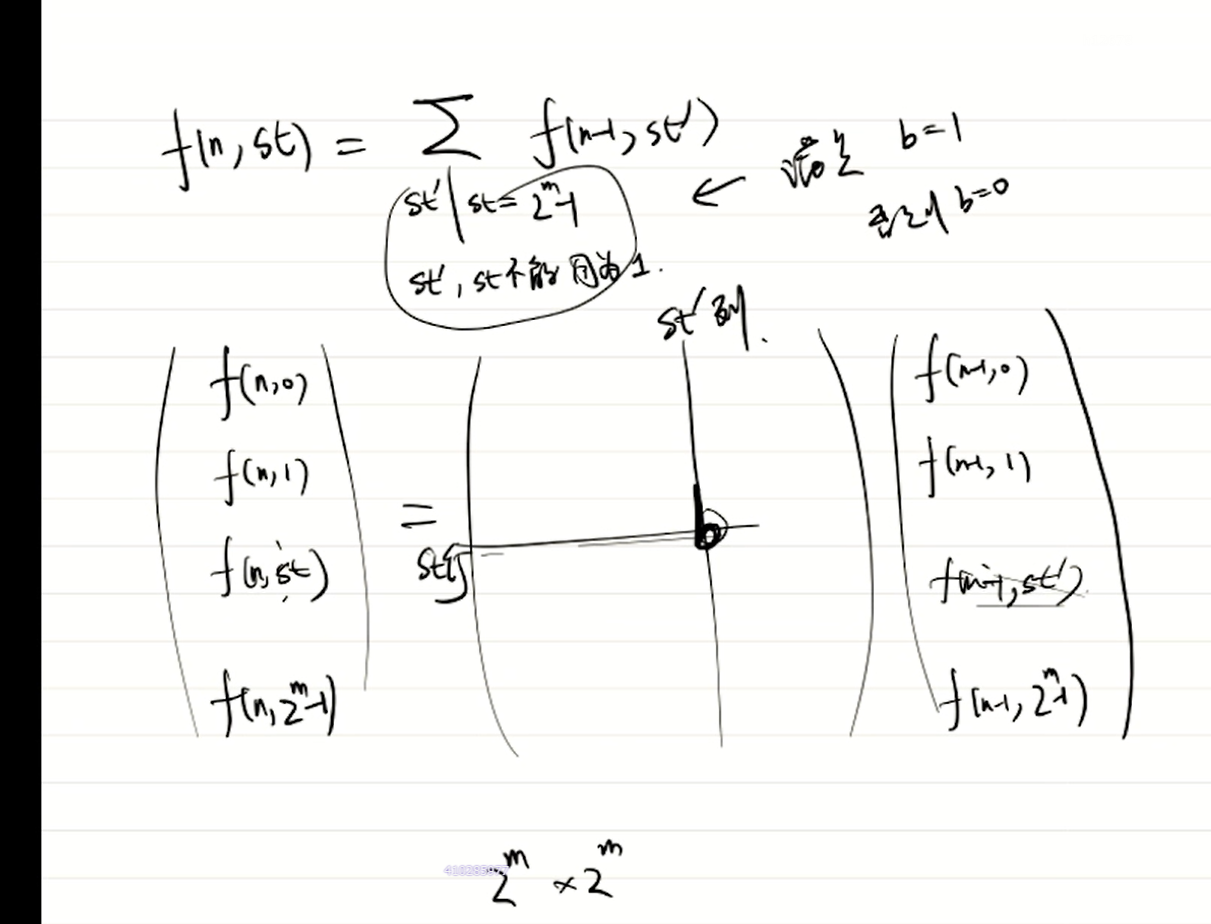 f(n, st) = Σ f(n-1, st')
st' | st = 2^m-1
st', st不能同为1.
← 满足 b=1
否则 b=0
st'列.
f(n,0)
f(n,1)
f(n,st)
f(n,2^m-1)
=
st行
f(n-1,0)
f(n-1,1)
f(n-1,st')
f(n-1,2^m-1)
2^m × 2^m